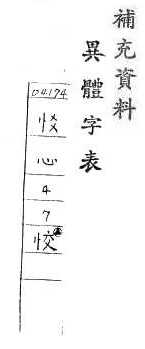 補充資料
異體字表
04194
心
4
7
恔